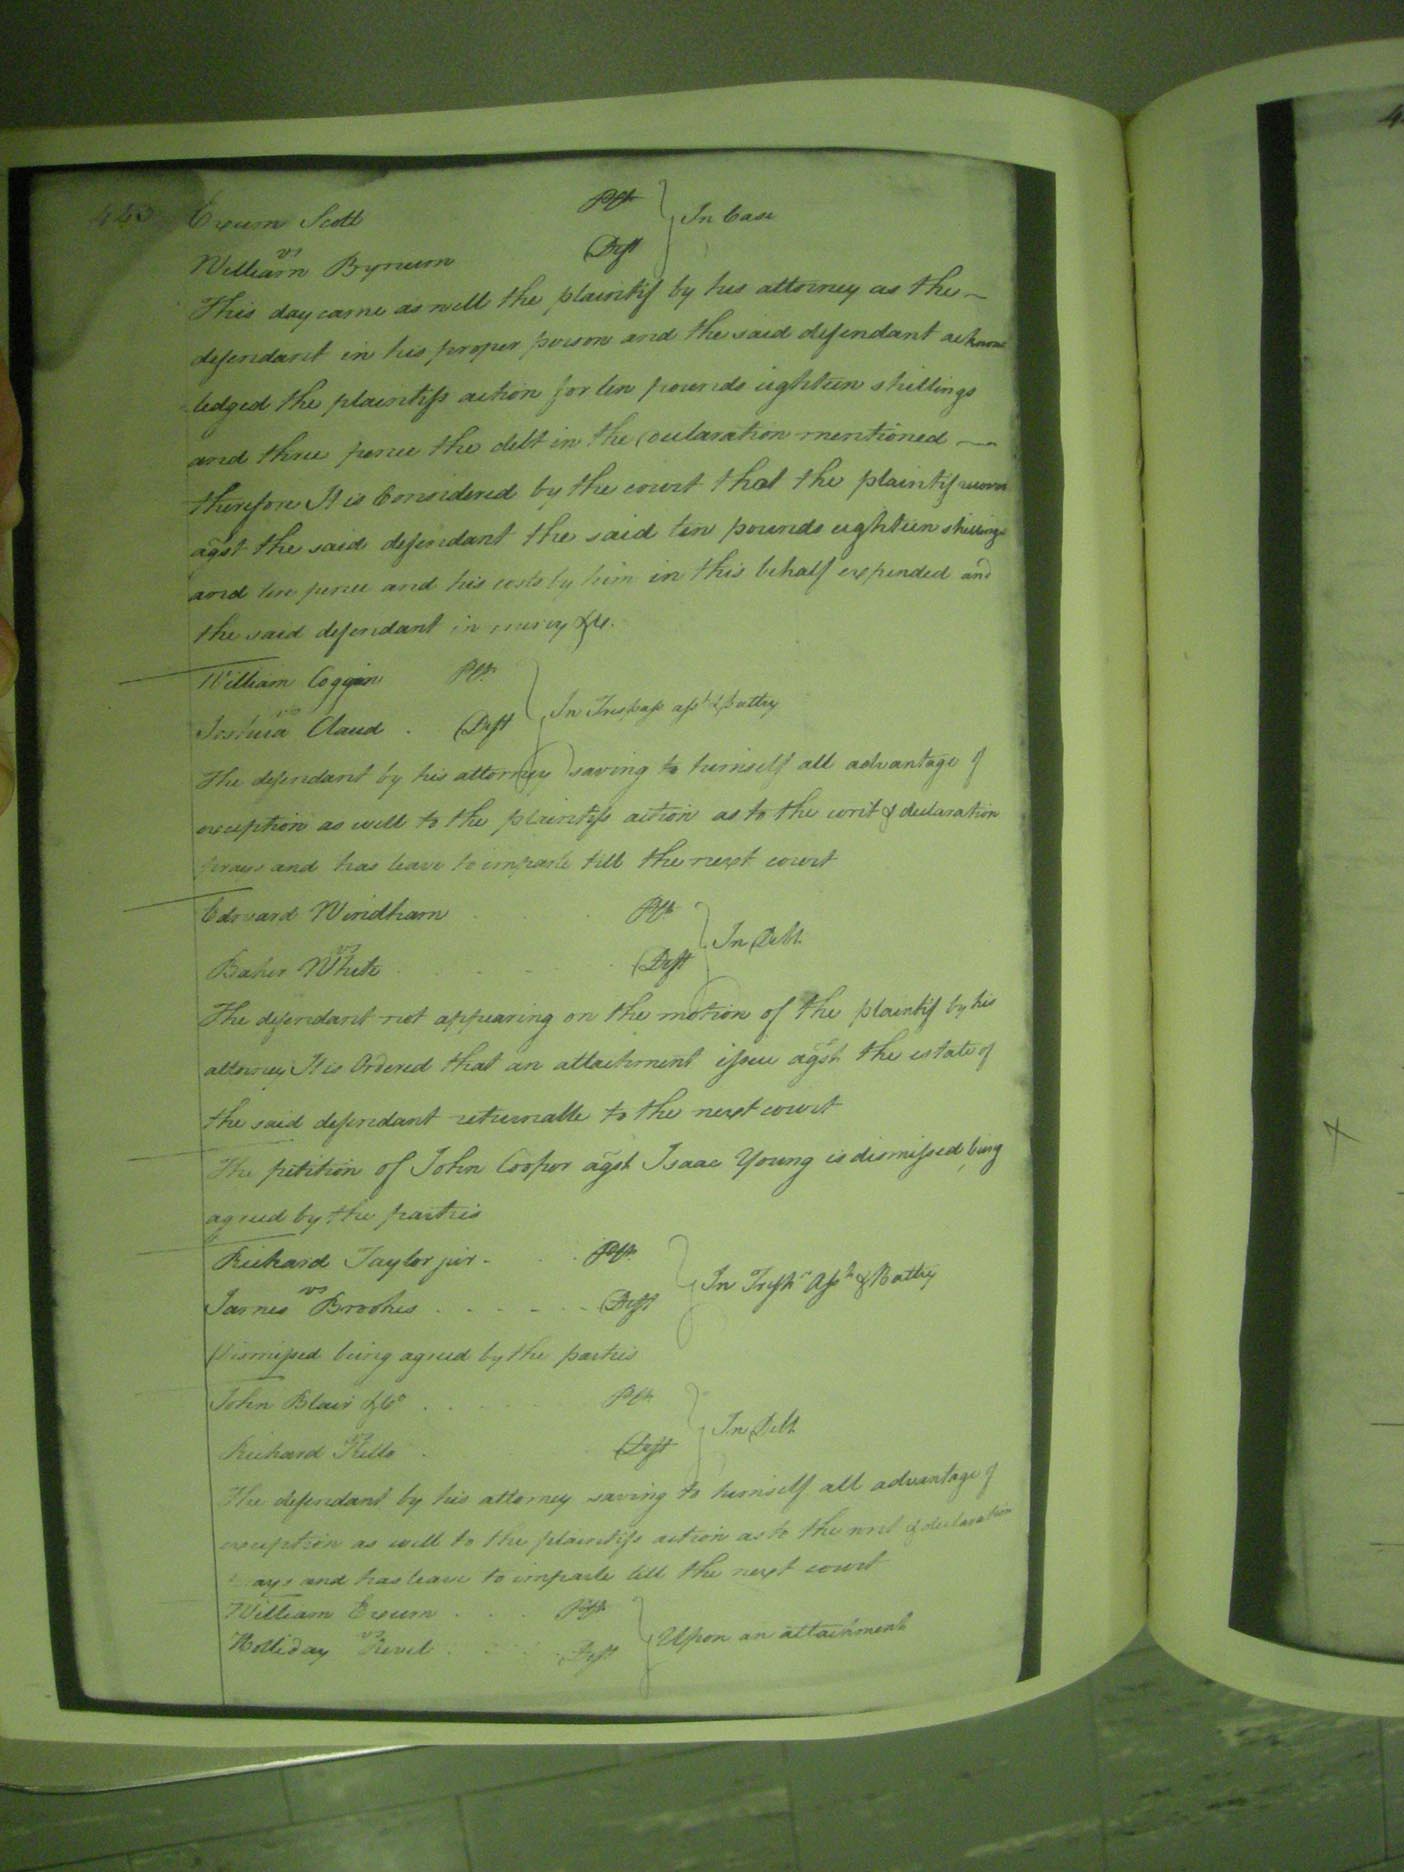 Exum Scott Plt
vs In Case
William Bynum Deft
This day came as well the plaintif by his attorney as the
defendant in his proper person and the said defendant acknow
ledged the plaintifs action for ten pounds eighteen shillings
and three pence the debt in the Declaration mentioned
therefore It is Considered by the court that the plaintif recover
agst the said defendant the said ten pounds eighteen shillings
and ten pence and his costs by him in this behalf expended and
the said defendant in mercy &c.
William Coggin Plt
vs In Trespass asst & Battry
Joshua Claud Deft
The defendant by his attorney saving to himself all advantage of
exception as well to the plaintifs action as to the writ & declaration
prays and has leave to imparle till the next court
Edward Windham Plt
vs In Debt
Baker White Deft
The defendant not appearing on the motion of the plaintif by his
attorney It is Ordered that an attachment issue agst the estate of
the said defendant returnable to the next court
The petition of John Cooper agst Isaac Young is dismissed being
agreed by the parties
Richard Taylor jur. Plt
vs In Tresps Asst & Battry
James Brookes Deft
Dismissed being agreed by the parties
John Blair & Co Plt
vs In Debt
Richard Kello Deft
The defendant by his attorney saving to himself all advantage of
exception as well to the plaintifs action as to the writ & declaration
ays and has leave to imparle till the next court
William Exum Plt
vs Upon an attachment
Holliday Revel Deft